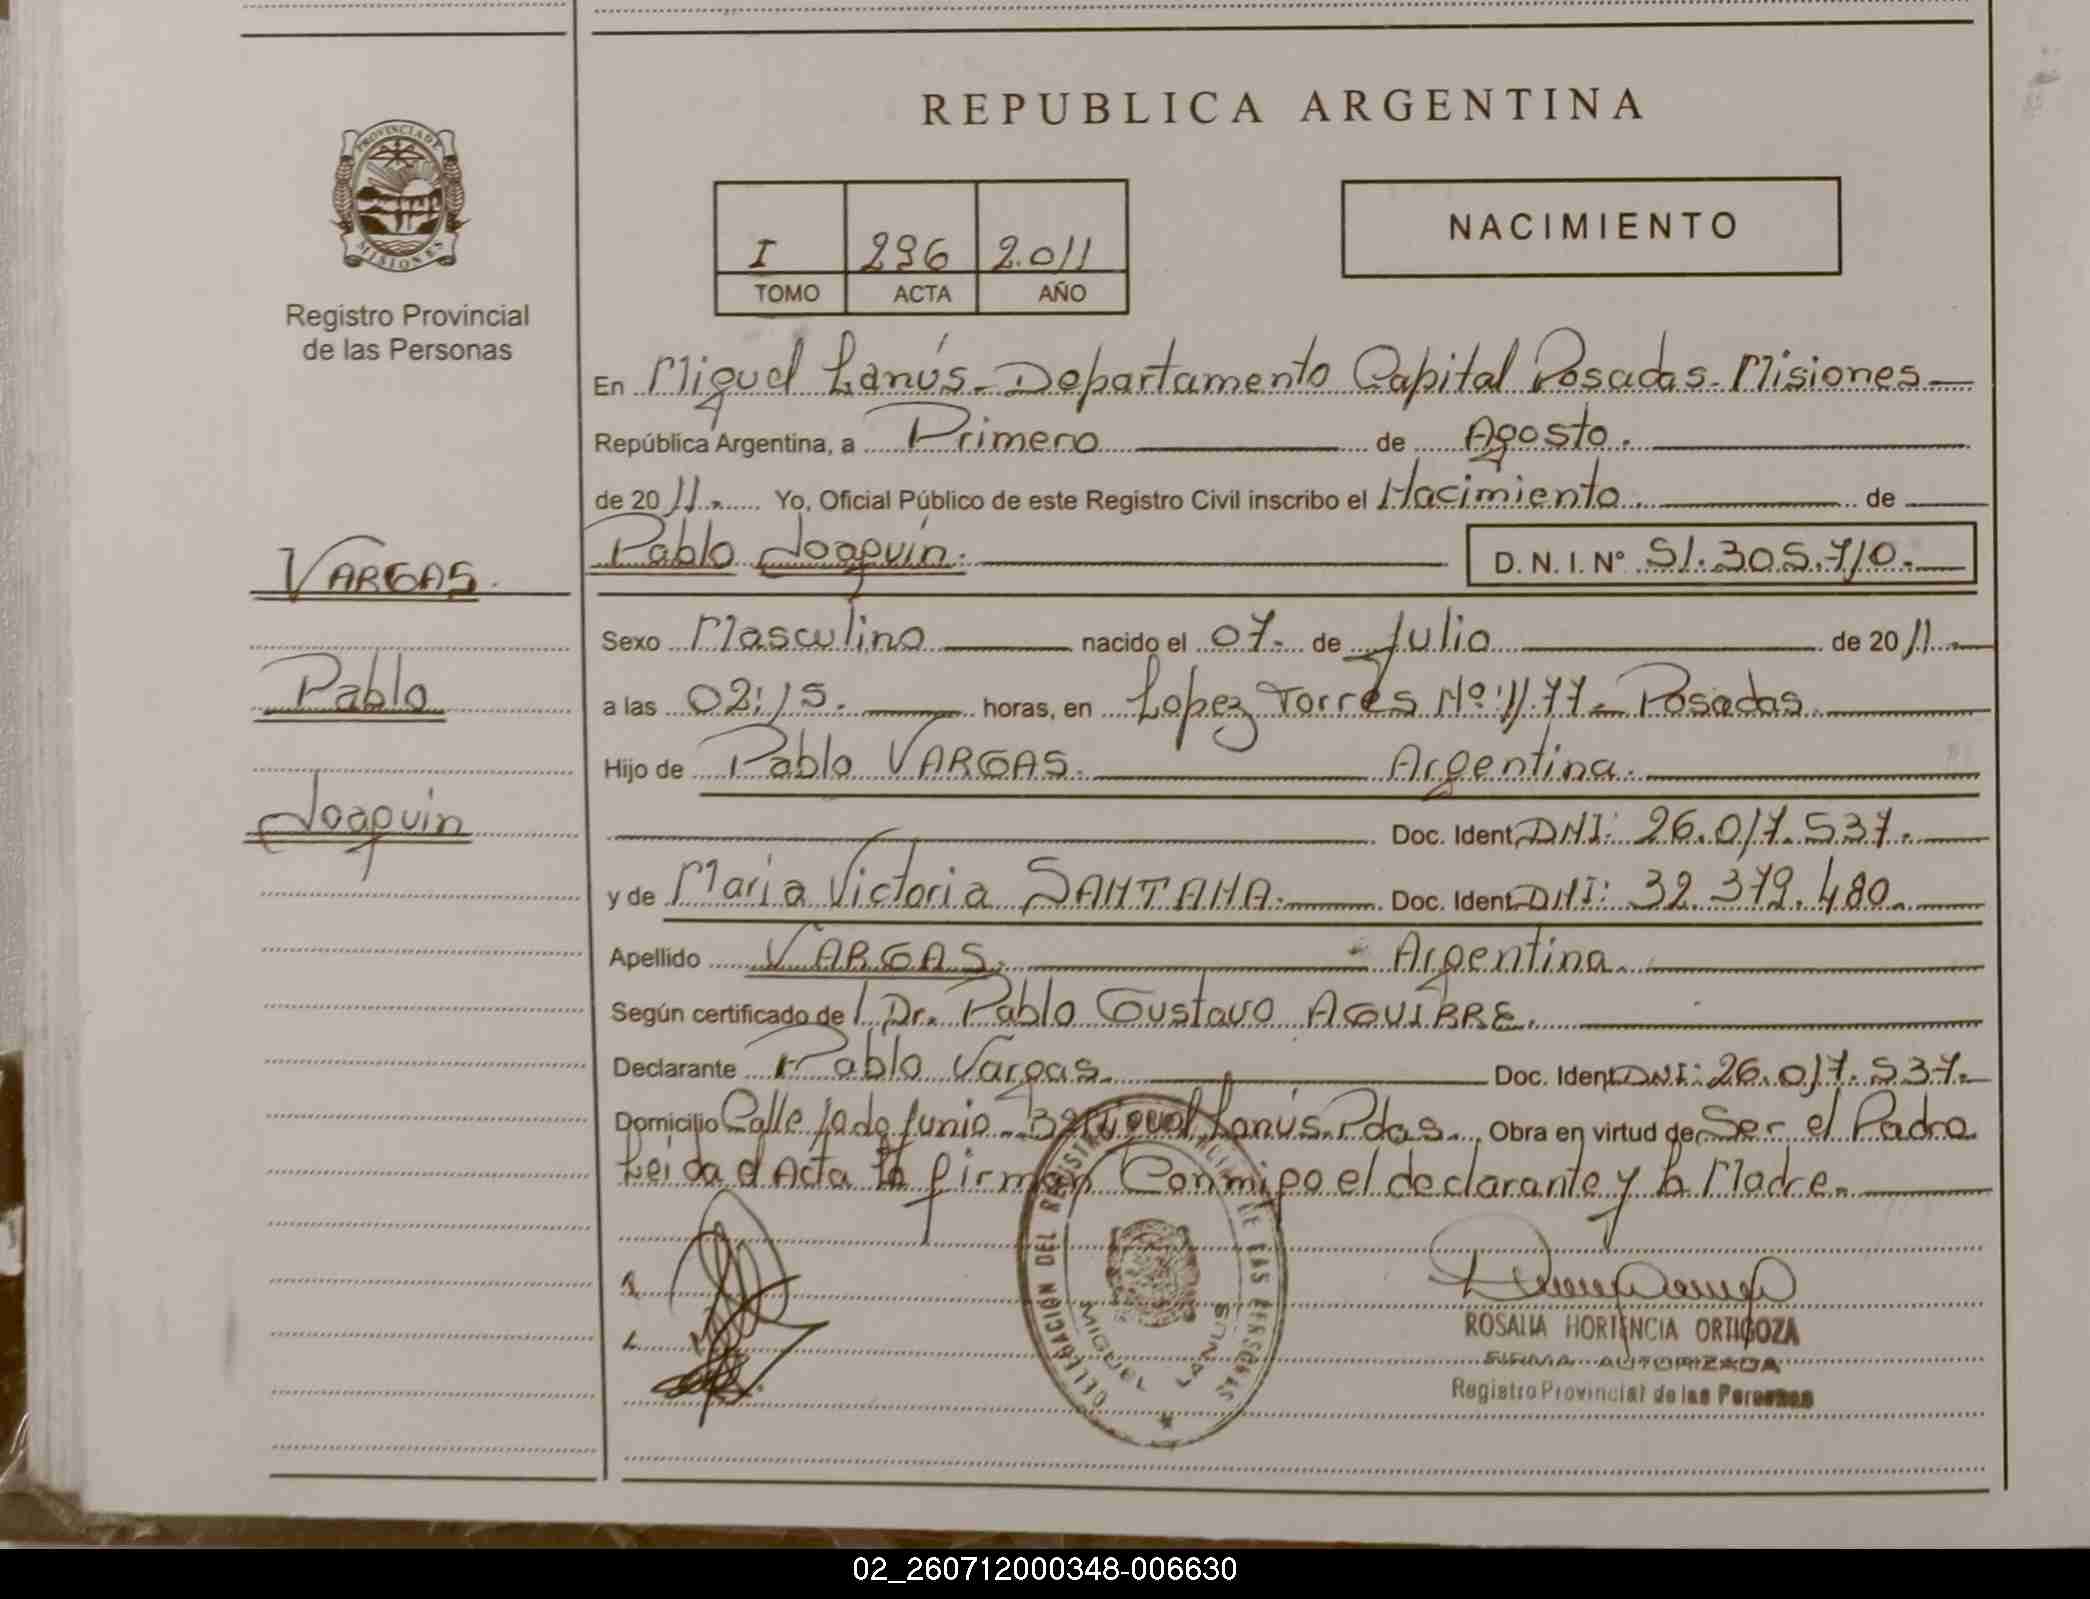 REPUBLICA ARGENTINA
PROVINCIA DE
MISIONES
Registro Provincial
de las Personas
I 296 2.011
TOMO ACTA AÑO
NACIMIENTO
En Miguel Lanús - Departamento Capital Posadas - Misiones
República Argentina, a Primero de Agosto.
de 2011. Yo, Oficial Público de este Registro Civil inscribo el Nacimiento de
VARGAS.
Pablo Joaquín. D. N. I. N° 51.305.710.
Sexo Masculino nacido el 07. de Julio de 2011.
Pablo
a las 02:15. horas, en Lopez Torres Nº 1177 - Posadas.
Hijo de Pablo VARGAS. Argentina.
Joaquín
Doc. Ident. DNI: 26.017.537.
y de Maria Victoria SANTANA. Doc. Ident. DNI: 32.379.480.
Apellido VARGAS. Argentina.
Según certificado de Dr. Pablo Gustavo AGUIRRE.
Declarante Pablo Vargas. Doc. Ident. DNI: 26.017.537.
Domicilio Calle 10 de Junio - Bº Miguel Lanús. Pdas. Obra en virtud de Ser el Padre
Leida el Acta la firman Conmigo el declarante y la Madre.
DELEGACIÓN DEL REGISTRO PROVINCIAL DE LAS PERSONAS
MIGUEL LANUS
ROSALIA HORTENCIA ORTIGOZA
FIRMA AUTORIZADA
Registro Provincial de las Personas
02_260712000348-006630